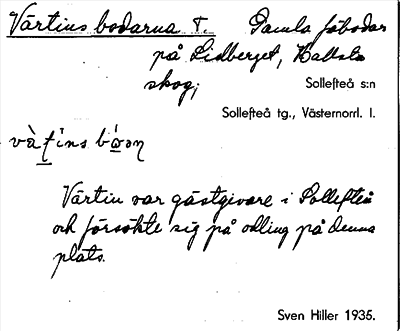 Värtins bodarna t. Gamla fäbodar
på Lidberget, Hallsta
skog;
Sollefteå s:n
Sollefteå tg., Västernorrl. l.
Värtin var gästgivare i Sollefteå
och försökte sig på odling på denna
plats.
Sven Hiller 1935.